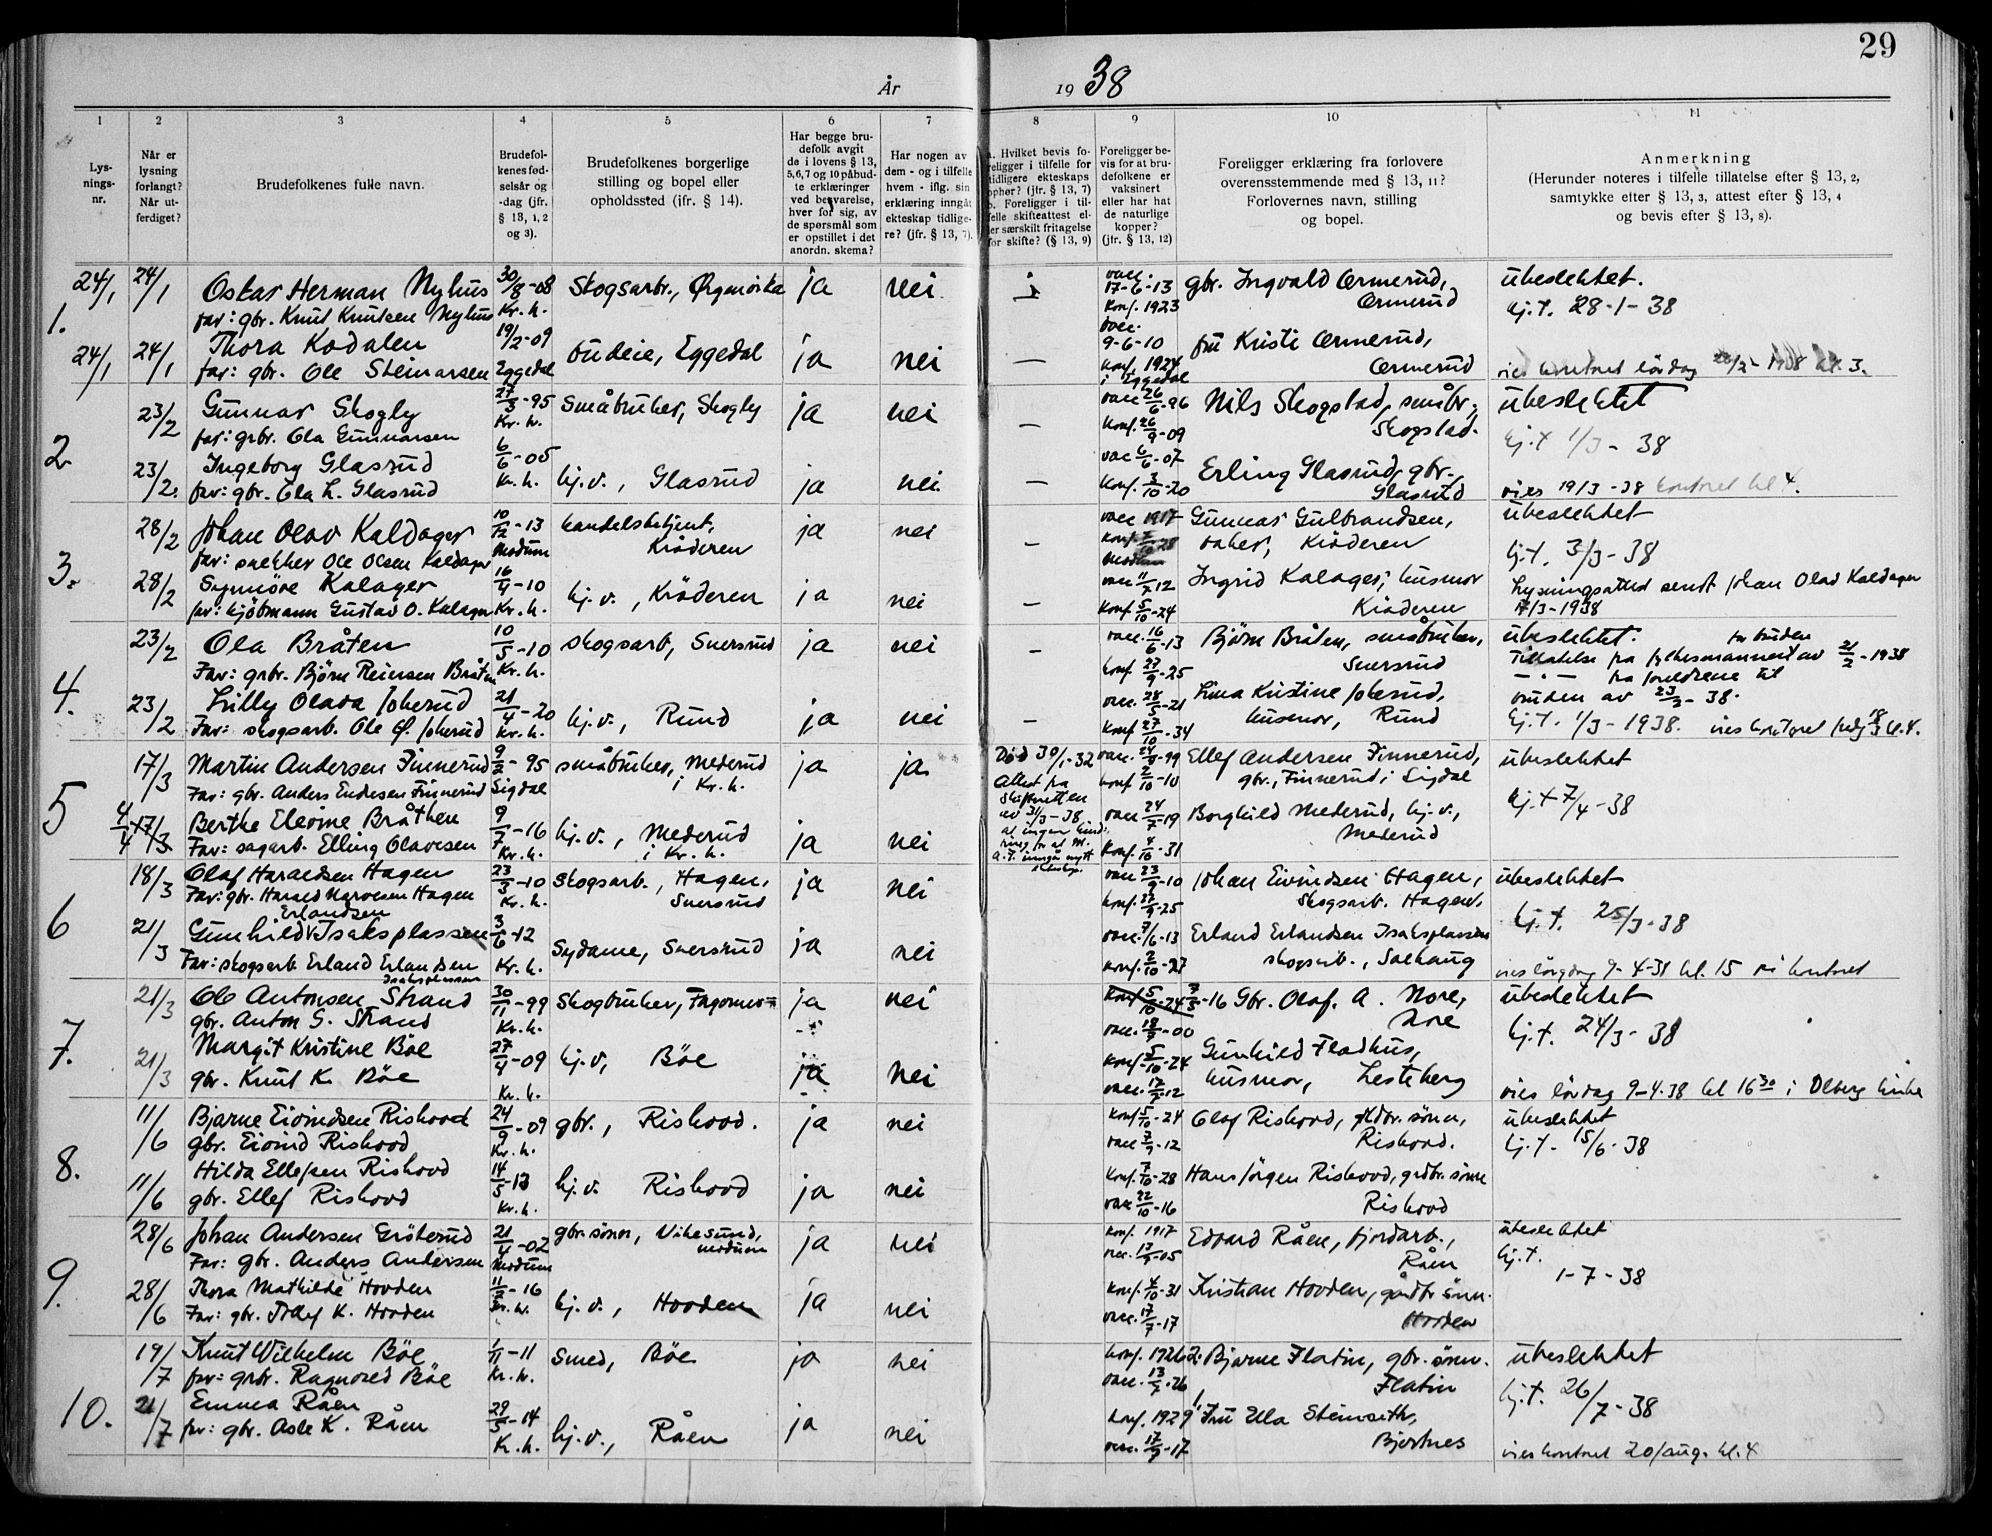 29
År 1938
1 2 3 4 5 6 7 8 9 10 11
Lys-
nings-
nr.
Når er
lysning
forlangt?
Når ut-
ferdiget?
Brudefolkenes fulle navn.
Brudefol-
kenes fød-
selsår og
-dag (jfr.
§ 13, 1, 2
og 3).
Brudefolkenes borgerlige
stilling og bopel eller
opholdssted (jfr. § 14).
Har begge bru-
defolk avgit
de i lovens § 13,
5,6,7 og 10 påbud-
te erklæringer
ved besvarelse,
hver for sig, av
de spørsmål som
er opstillet i det
anordn. skema?
Har nogen av
dem - og i tilfelle
hvem - iflg. sin
erklæring inngåt
ekteskap tidlige-
re? (jfr. § 13, 7).
a. Hvilket bevis fo-
religger i tilfelle for
tidligere ekteskaps
ophør? (jfr. § 13, 7)
b. Foreligger i til-
felle skifteattest el-
ler særskilt fritagelse
for skifte? (§ 13, 9)
Foreligger be-
vis for at bru-
defolkene er
vaksinert
eller har hat
de naturlige
kopper?
(jfr. § 13, 12)
Foreligger erklæring fra forlovere
overensstemmende med § 13, 11?
Forlovernes navn, stilling
og bopel.
Anmerkning
(Herunder noteres i tilfelle tillatelse efter § 13, 2,
samtykke efter § 13, 3, attest efter § 13, 4
og bevis efter § 13, 8).
1.
24/1 24/1 Oskar Herman Nyhus 30/8-08 Skogsarb., Ørgenvika ja nei vacc. 17-6-13 gbr. Ingvald Ormerud, ubeslektet.
far: gbr. Knut Knutsen Nyhus Kr.h. Konf. 1923 Ormerud kj.t. 28-1-38
24/1 24/1 Thora Kodalen 19/2-09 budeie, Eggedal ja nei — vacc. 9-6-10 fru Kristi Ormerud,
far: gbr. Ole Steinarsen Eggedal Konf. 1924 i Eggedal Ormerud
2.
23/2 Gunnar Skogly 27/3-95 Småbruker, Skogly ja nei — vacc 26/6-96 Nils Skogstad, småbr., ubeslektet
far: grbr. Ola Gunnarsen Kr.h. Konf. 26/9-09 Skogstad. kj.t 1/3-38
23/2. Ingeborg Glasrud 6/6-05 hj.v., Glasrud ja nei — vac 6/6-07 Erling Glasrud, gbr.,
far: gbr. Ola L. Glasrud Kr.h. Konf. 3/10-20 Glasrud vies 19/3-38 kontoret kl 4.
3.
28/2 Johan Olav Kaldager 10/12-13 handelsbetjent, ja nei — vacc 1917 Gunnar Gulbrandsen, ubeslektet
far: snekker Ole Olsen Kaldager Modum Kröderen baker, Kröderen kj.t. 3/3-38
28/2 Synnöve Kalager 16/4-10 hj.v., Kröderen ja nei — vacc 11/7 12 Ingrid Kalager, husmor Lysningsattest sendt Johan Olav Kaldager
far: kjöbmann Gustav O. Kalager Kr.h. Konf 5/10-24 Kröderen /3-1938
4.
23/2 Ola Bråten 10/5-10 skogsarb, Snersrud ja nei — vacc. 16/6-13 Björn Bråten, småbruker, ubeslektet. for bruden
Far: grbr. Björn Reinsen Bråten Kr.h. konf 27/9-25 Snersrud Tillatelse fra fylkesmannen av 21/2-1938
— " — fra foreldrene til
23/2 Lilly Olava Joherud 21/4-20 hj.v., Rund ja nei — vacc. 28/5-21 Lina Kristine Joherud, bruden av 23/2-38.
Far: skogsarb. Ole Ø. Joherud Kr.h. Konf 27/10-34 husmor, Rund kj.t. 1/3-1938.
5
17/3 Martin Andersen Finnerud 9/2-95 småbruker, Mederud ja ja Död 30/1-32 vacc. 24/9-99 Ellef Andersen Finnerud, ubeslektet
Far: gbr. Anders Endresen Finnerud Sigdal i Kr.h. Attest fra Skifteretten av 31/3-38 konf 2/10-10 gbr., Finnerud i Sigdal kj.t 7/4-38
4/4 17/3 Berthe Elevine Bråthen 9/7-16 hj.v., Mederud ja nei at ingen hind- ring for at M. A. F. inngår nytt vacc 24/7 19 Borghild Mederud, hj.v.,
Far: sagarb. Elling Olavesen Kr.h. i Kr.h. Konf. 4/10-31 Mederud
6
18/3 Olaf Haraldsen Hagen 23/3-10 Skogsarb., Hagen, ja nei vacc 23/9-10 Johan Eivindsen Hagen, ubeslektet
Far: gbr. Harald Narvesen Hagen Kr.h. Snersrud konf. 27/9-25 Skogsarb. Hagen. kj.t. 25/3-38
21/3 Gunhild Erlandsen Isaksplassen 3/6-12 Sydame, Snersrud ja nei vacc. 7/6-13 Erland Erlandsen Isaksplassen
Far: skogsarb Erland Erlandsen Isaksplassen Kr.h. konf. 2/10-27 skogsarb., Solhaug
7.
21/3 Ole Antonsen Strand 30/11-99 Skogbruker, ja nei Gbr. Olaf. A. Nore, ubeslektet
gbr. Anton S. Strand Kr.h. Nore kj.t. 24/3-38
21/3 Margit Kristine Böe 27/4-09 hj.v, Böe ja nei konf. 5/10-24 Gunhild Fladhus,
gbr. Knut K. Böe Kr.h. vacc. 17/7-12 husmor, Lesteberg vies lördag 9-4-38 kl 16 30 i Olberg kirke
8.
11/6 Bjarne Eivindsen Rishovd 24/9-09 gbr., Rishovd. ja nei Konf 5/10-24 Olaf Rishovd, gbr. sönn, ubeslektet
gbr. Eivind Rishovd Kr.h. vacc 7/7-12 Rishovd. kj.t. 15/6-38
11/6 Hilda Ellefsen Rishovd 14/5-13 hj.v. Rishovd ja nei Konf 7/10-28 Hans Jörgen Rishovd, grdbr. sönn
gbr. Ellef Rishovd Kr.h. vacc 22/10-16 Rishovd
9.
28/6 Johan Andersen Gröterud 21/4-02 gbr. sönn, Vikesund, ja nei konf. 1917 Edvard Råen, jordarb., ubeslektet
Far: gbr. Anders Andersen Modum Modum Råen kj.t.
1-7-38
28/6 Thora Mathilde Hovden 11/2-16 hj.v., Hovden ja nei konf. 4/10-31 Kristian Hovden, gårdbr sönn.
Far: gbr. Tollef K. Hovden Kr.h. vacc. 17/7-17 Hovden
10.
19/7 Knut Wilhelm Böe 1/11-11 Smed, Böe ja nei konf. 1926 2: Bjarne Flatin, gbr. sönn. ubeslektet
far: grbr. Ragnvald Böe Kr.h. vacc. 13/7-26 Flatin kj.t. 26/7-38
21/7 Emma Råen 29/5-14 hj.v., Råen ja nei konf. 1929 1, Fru Ella Stenseth,
far: gbr. Asle K. Råen Kr.h. vacc. 17/7-17 Bjertnes vies kontoret 20/aug. kl. 4